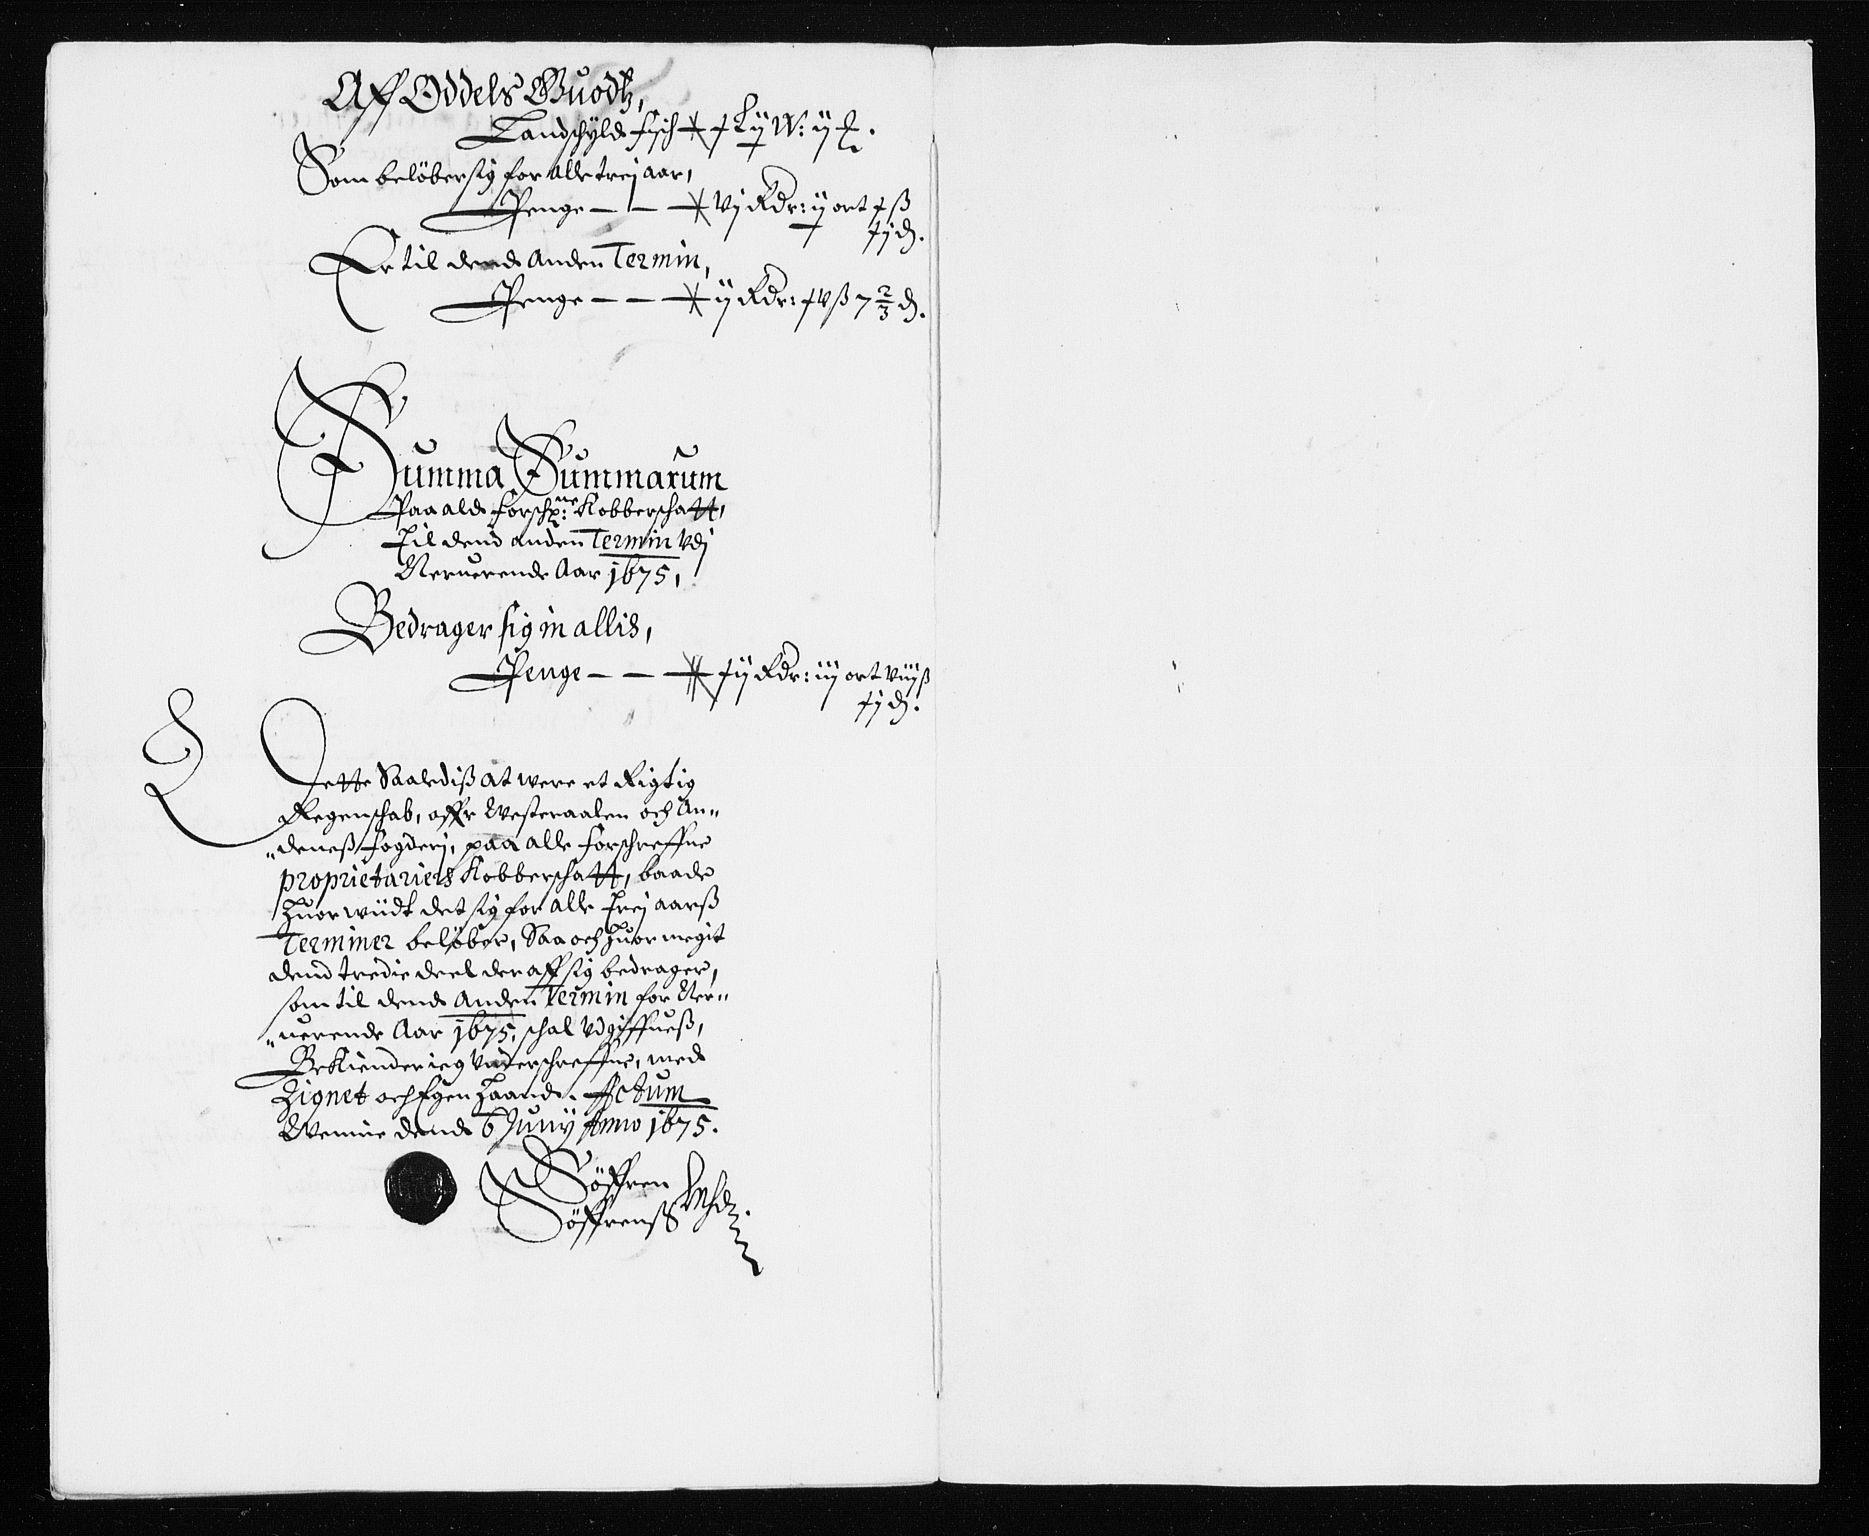 Aff Oddels Guodtz,
Landschyld fisch
Som beløber sig for alle trej aar,
Penge — — vj Rdr: ij ort
Er til dend Anden Termin,
Penge — — ij Rdr: ß 7 2/3 d.
Summa Summarum
Paa ald forschr:ne Kobberschatt,
Til dend anden Termin Udj
Neruerende Aar 1675,
Bedrager sig in allis,
Penge — — Rdr: iij ort viij ß
Dette Saalediß at were et Rigtig
Regenschab, offr Westeraalen och An„
„deneß fogderj, paa alle forschreffne
proprietariers Kobberschatt, baade
Huor wiidt det sig for alle Trej aarß
Terminer beløber, Saa och Huor megit
dend tredie deel der aff sig bedrager,
som til dend Anden Termin for Ner„
„uerende Aar 1675, schal Udgiffueß,
Bekiender ieg Underschreffne, med
Zignet och Egen Haand. Actum
dend 6 Juny Anno 1675.
Søffren
Søffrenß